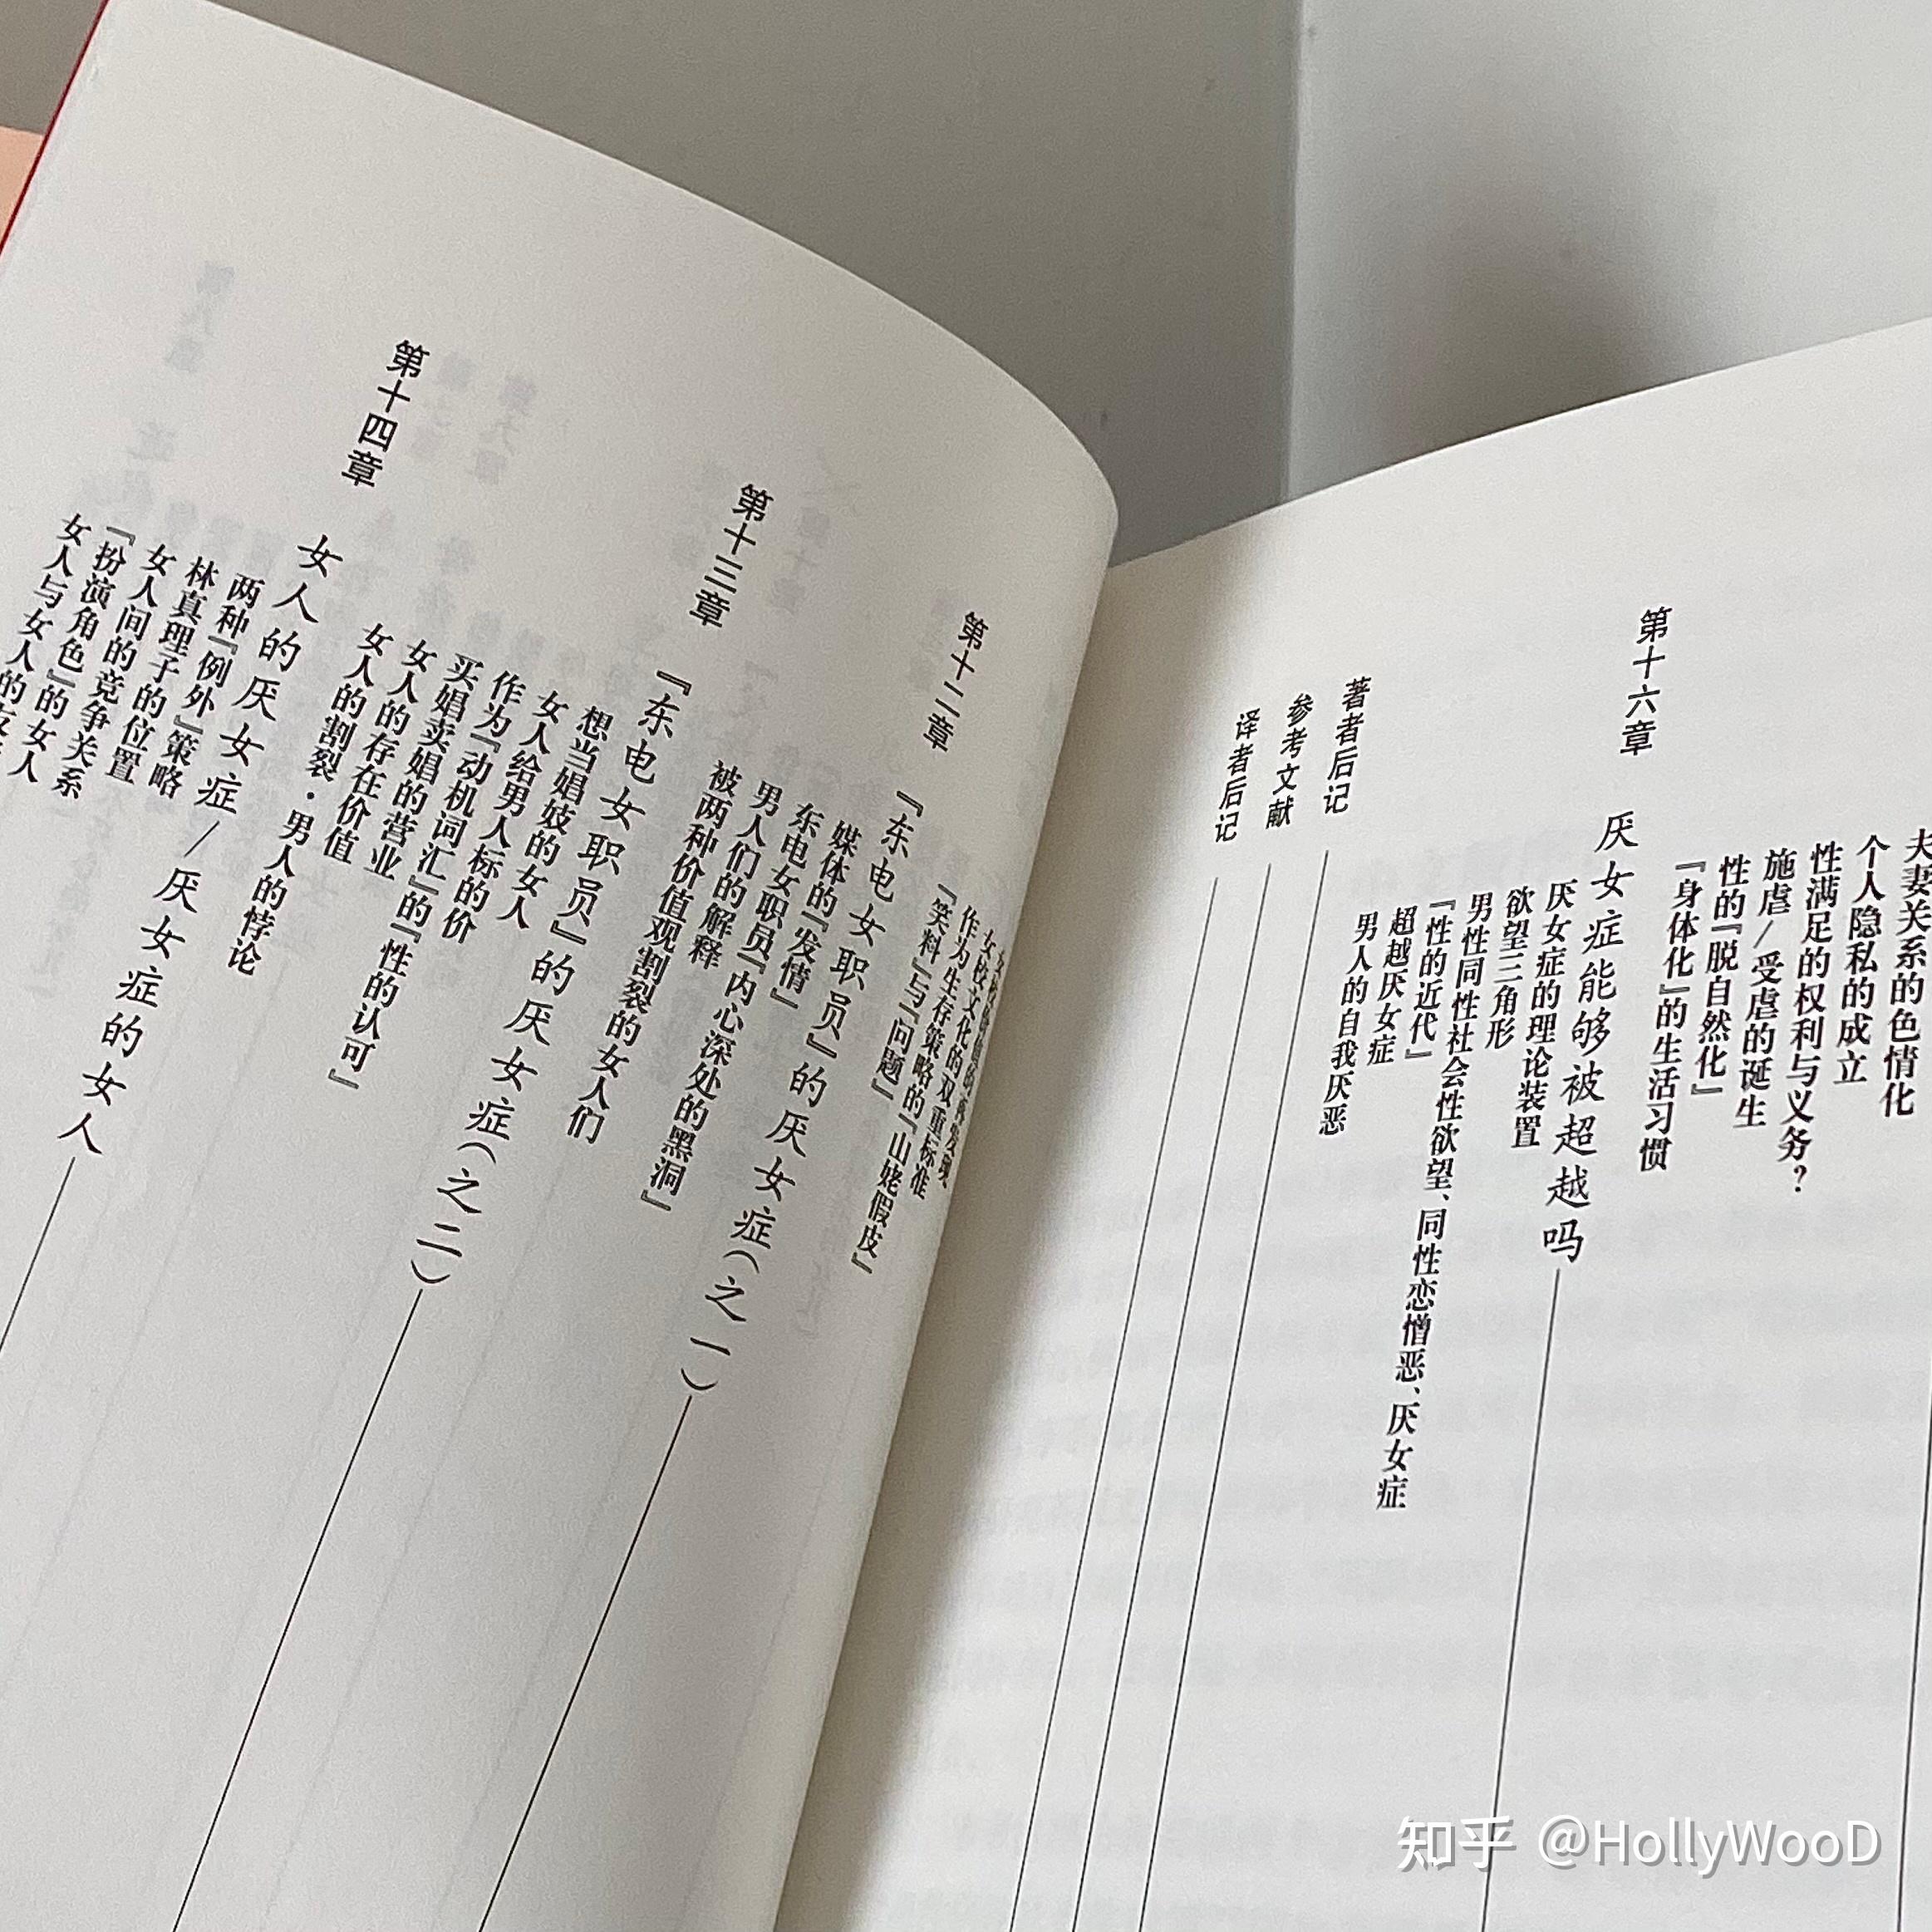 作为生存策略的『双重标准
『笑料』与『问题』『山姥假皮』
第十二章
『东电女职员』的厌女症(之一)
媒体的『发情』
东电女职员『内心深处的黑洞』
男人们的解释
被两种价值观割裂的女人们
第十三章
『东电女职员』的厌女症(之二)
想当娼妓的女人
女人给男人标的价
作为『动机词汇』的『性的认可』
买娼卖娼的营业
女人的存在价值
女人的割裂·男人的悖论
第十四章
女人的厌女症/厌女症的女人
两种『例外』策略
林真理子的位置
女人间的竞争关系
『扮演角色』的女人
女人与女人的
夫妻关系的色情化
个人隐私的成立
性满足的权利与义务？
施虐/受虐的诞生
性的『脱自然化』
『身体化』的生活习惯
第十六章
厌女症能够被超越吗
厌女症的理论装置
欲望三角形
男性同性社会性欲望、同性恋憎恶、厌女症
『性的近代』
超越厌女症
男人的自我厌恶
著者后记
参考文献
译者后记
知乎 @HollyWooD